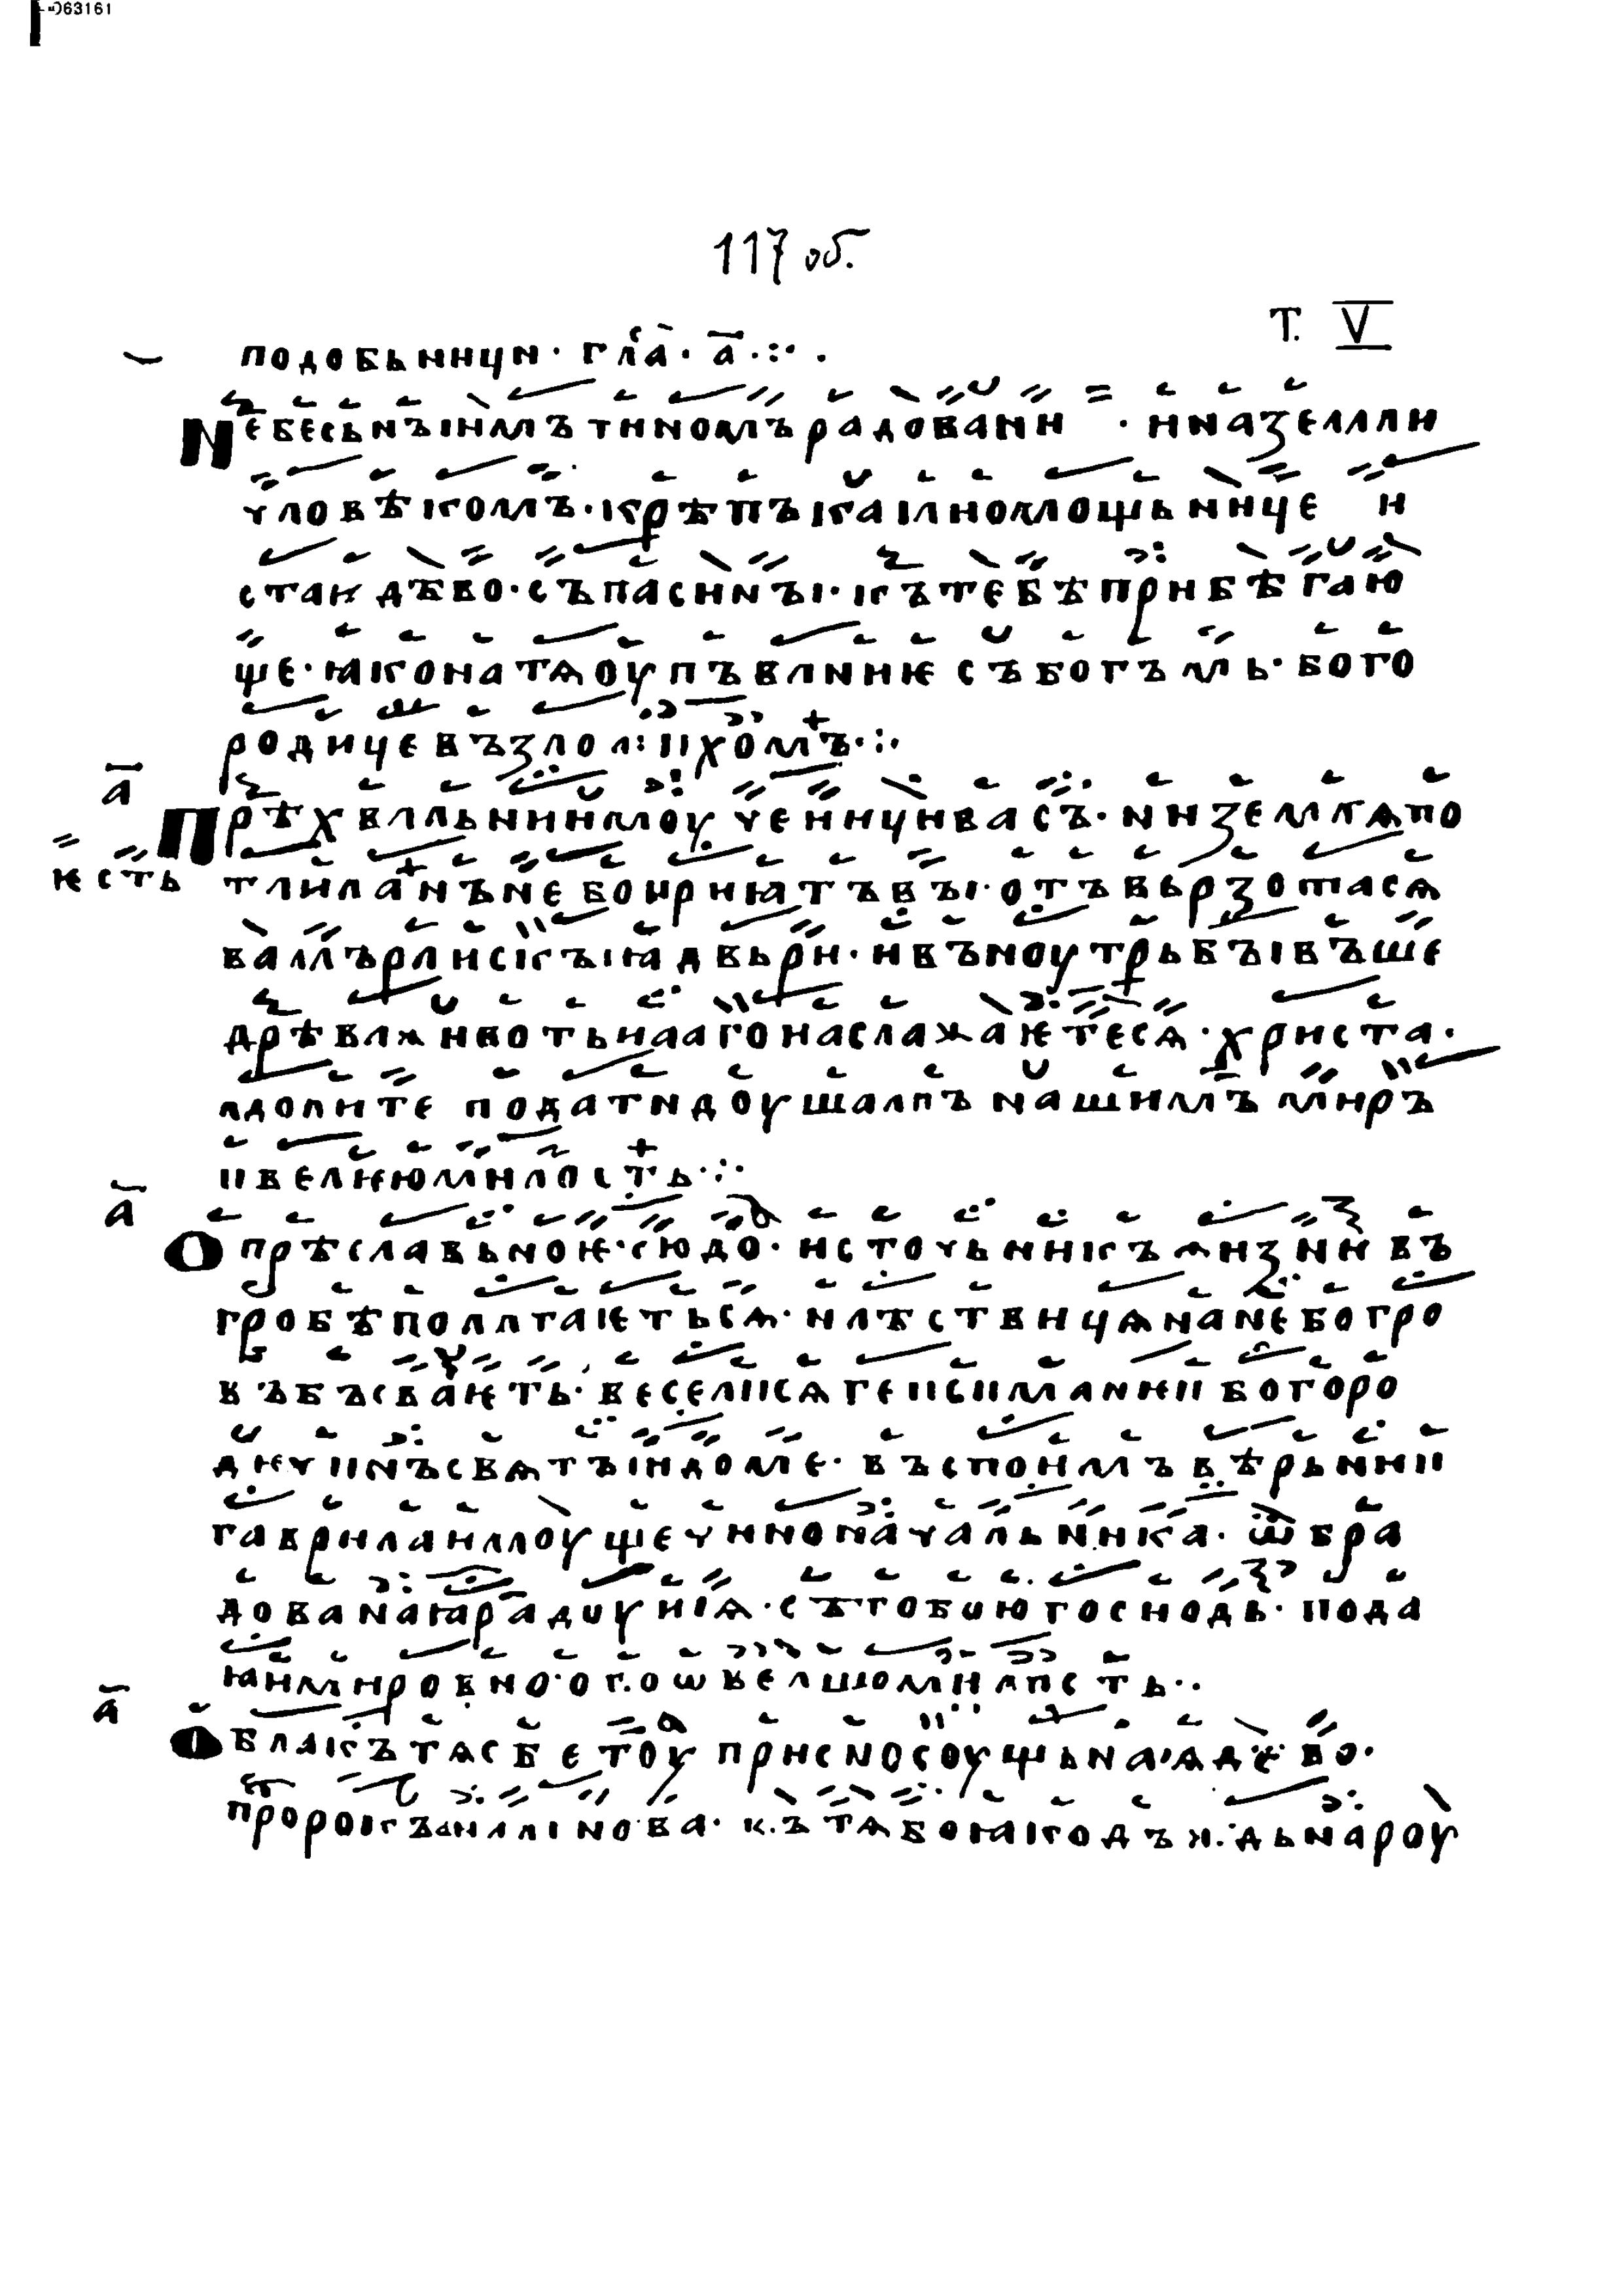 063161
117 об.
Т. V
подобьници · гла҃ · а҃ ·:· .
Небесьнꙑимъ тиномъ радовани · и на земли
чловѣкомъ · крѣпъкаꙗ помощьнице и
стаꙗ дѣво · съпаси нꙑ · къ тебѣ прибѣгаю
ще · ꙗко на тѧ оупъвание съ богъмь · бого
родице възложихомъ ·:·
а҃
Прѣхвальнии моученици васъ · ни землѧ по
ѥсть таила нъ небо приѩтъ вꙑ · отъвьрзоша сѧ
вамъ раискꙑꙗ двьри · и въноутрь бꙑвъше
дрѣва животьнааго наслажаѥте сѧ · христа ·
молите подати доушамъ нашимъ миръ
и велию милость ·:·
а҃
О прѣславьноѥ чюдо · источьникъ жизни въ
гробѣ полагаѥть сѧ · и лѣствицѧ на небо гро
бъ бываѥть · весели сѧ геѳсимании богоро
дичинъ свѧтꙑи доме · въспоимъ вѣрьнии
гаврила имоуще чиноначальника · ѡбра
дованаꙗ радоуи сѧ · съ тобою господь · пода
ꙗи мирови велию милость ·
а҃
Облакъ тѧ свѣтоу присносоущьнаꙗ дѣво ·
пророкъ именова · къ тебѣ бо ꙗко дъждь на роу